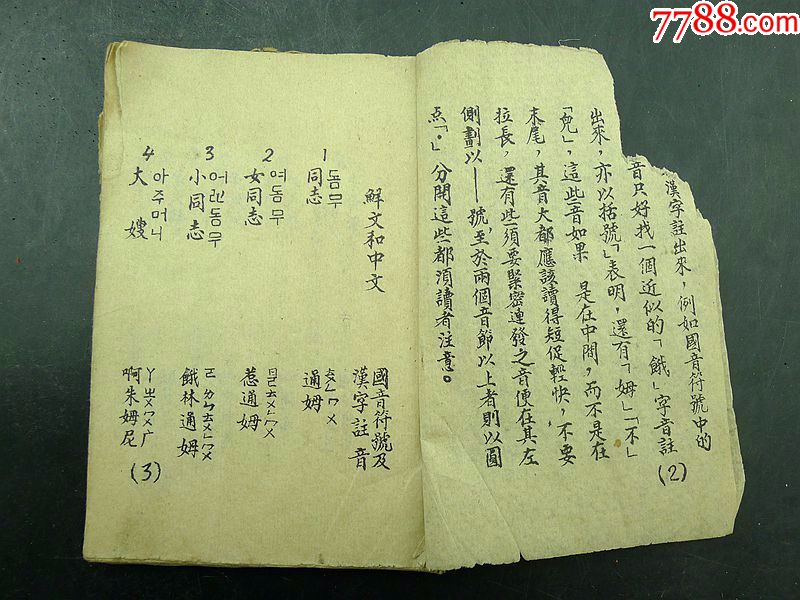 7788.com
漢字註出來，例如國音符號中的
音只好找一個近似的「餓」字音註
出來，亦以括號「」表明，還有「姆」「不」
「兒」，這些音如果 是在中間，而不是在
末尾，其音大都應該讀得短促輕快，不要
拉長，還有些須要緊密連發之音便在其左
側劃以——號，至於兩個音節以上者則以圓
点「·」分開這些都須讀者注意。
(2)
鮮文和中文
國音符號及
漢字註音
1
동무
同志
ㄊㄨㄥㄇㄨ
通姆
2
여동무
女同志
惹通姆
3
어린동무
小同志
餓林通姆
4
아주머니
大嫂
ㄚㄓㄨㄇㄏ
啊朱姆尼
(3)